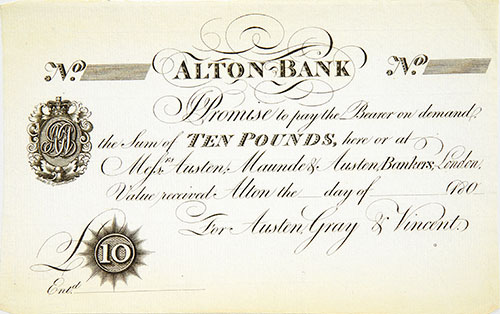 No. ALTON BANK No.
I Promise to pay the Bearer on demand
the Sum of TEN POUNDS, here or at
Messrs Austen, Maunde & Austen, Bankers, London.
Value received Alton the day of 180
For Austen, Gray & Vincent.
£ 10
Entd